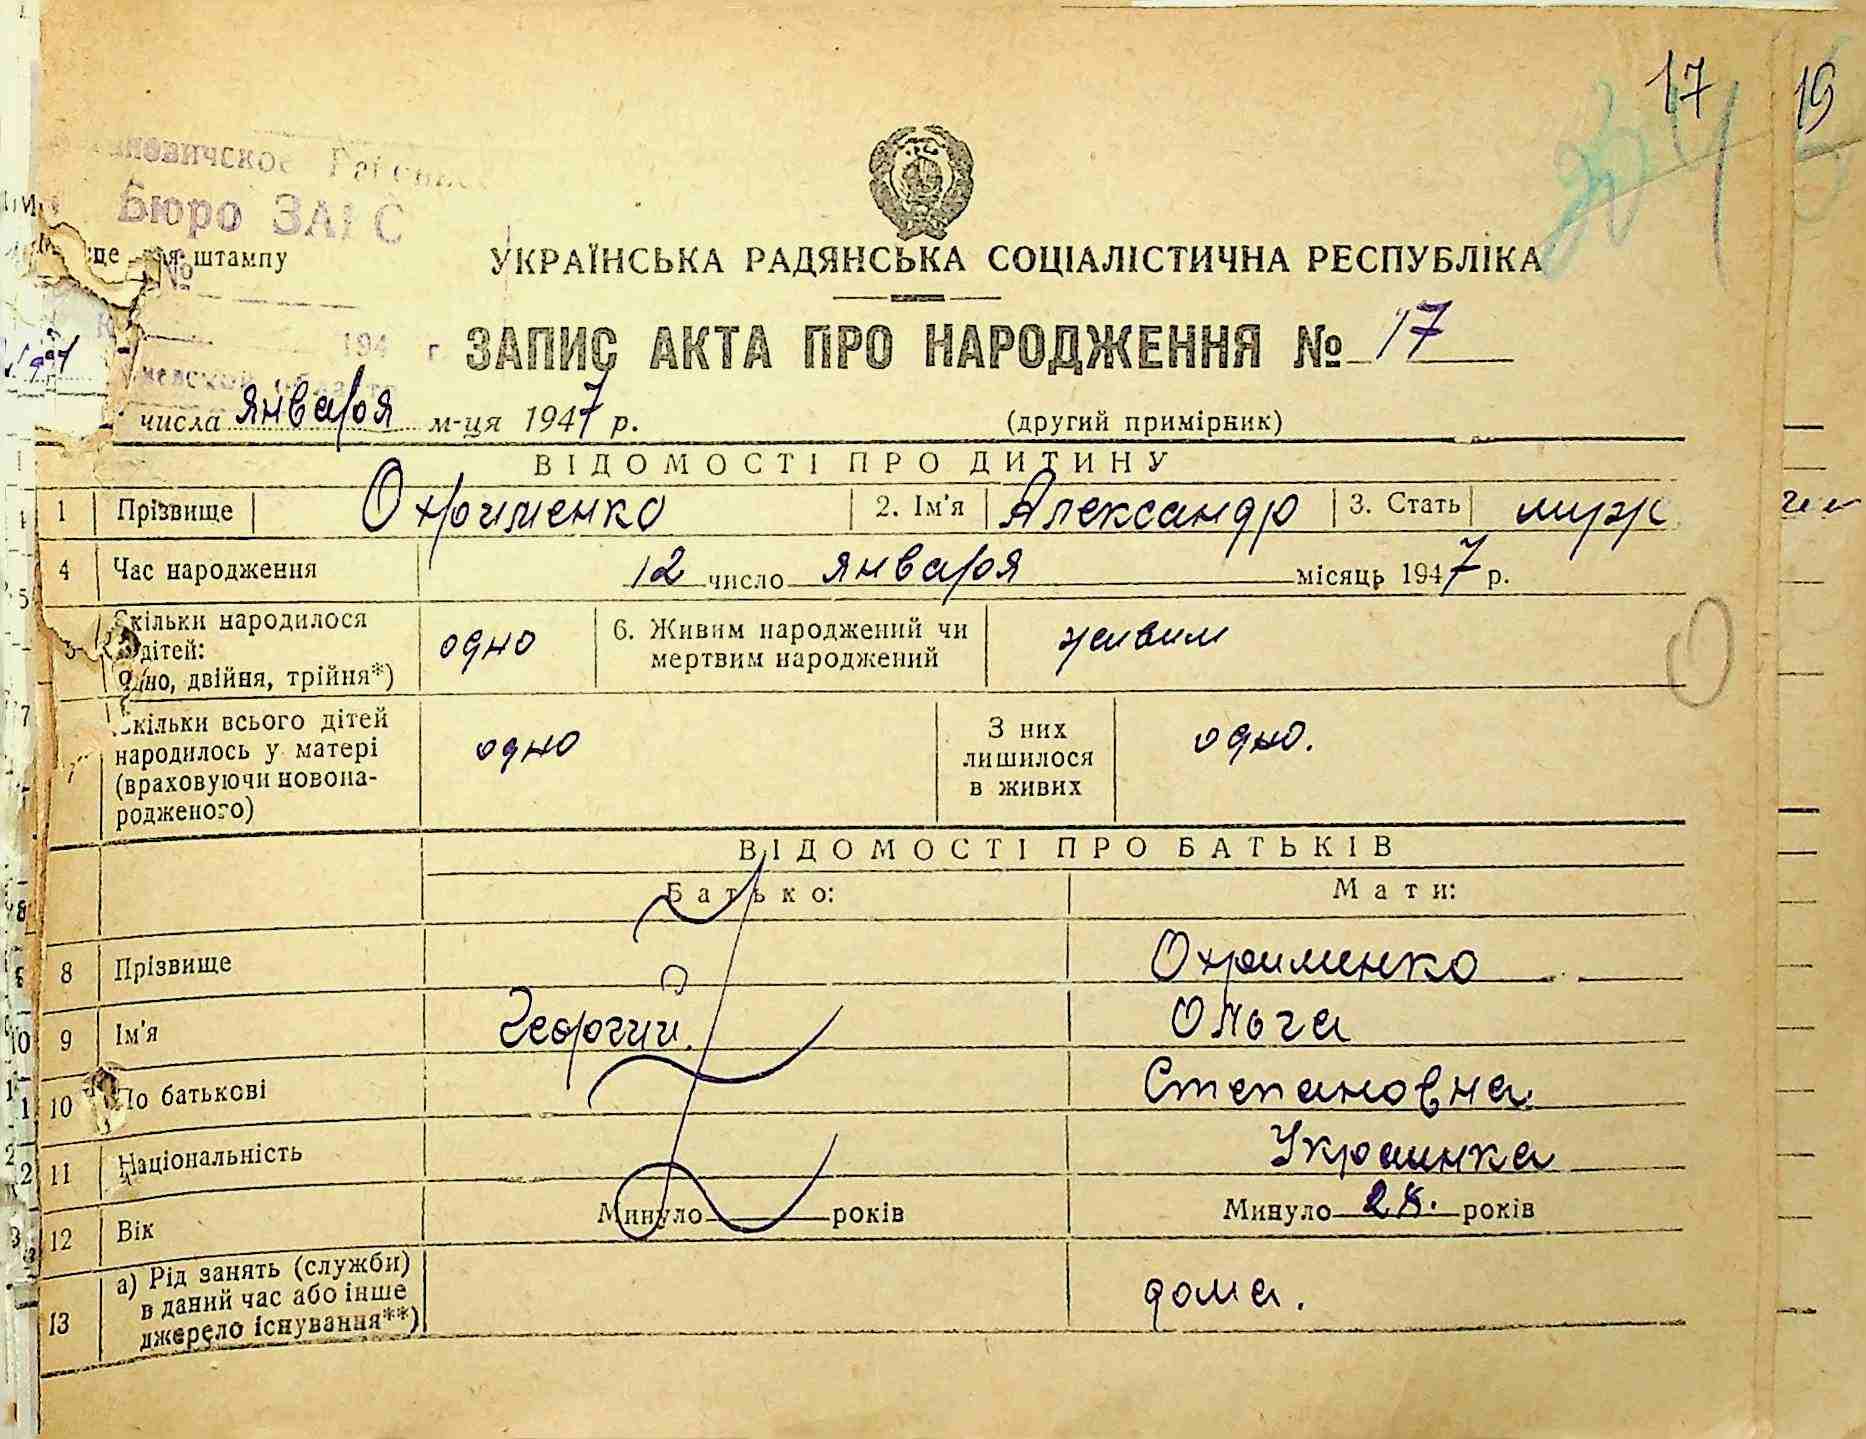 17
19
Бюро ЗАГС
штампу
№
УКРАЇНСЬКА РАДЯНСЬКА СОЦІАЛІСТИЧНА РЕСПУБЛІКА
194 г.
ЗАПИС АКТА ПРО НАРОДЖЕННЯ № 17
числа января м-ця 1947 р. (другий примірник)
ВІДОМОСТІ ПРО ДИТИНУ
1 Прізвище Охрименко 2. Ім'я Александр 3. Стать муж
4 Час народження 12 число января місяць 1947 р.
5 Скільки народилося
дітей:
одно, двійня, трійня*) одно 6. Живим народжений чи
мертвим народжений живим
7 Скільки всього дітей
народилось у матері
(враховуючи новона-
родженого) одно З них
лишилося
в живих одно.
ВІДОМОСТІ ПРО БАТЬКІВ
Батько: Мати:
8 Прізвище Охрименко
9 Ім'я Георгий. Ольга
10 По батькові Степановна
11 Національність Украинка
12 Вік Минуло років Минуло 28. років
13 а) Рід занять (служби)
в даний час або інше
джерело існування**) дома.